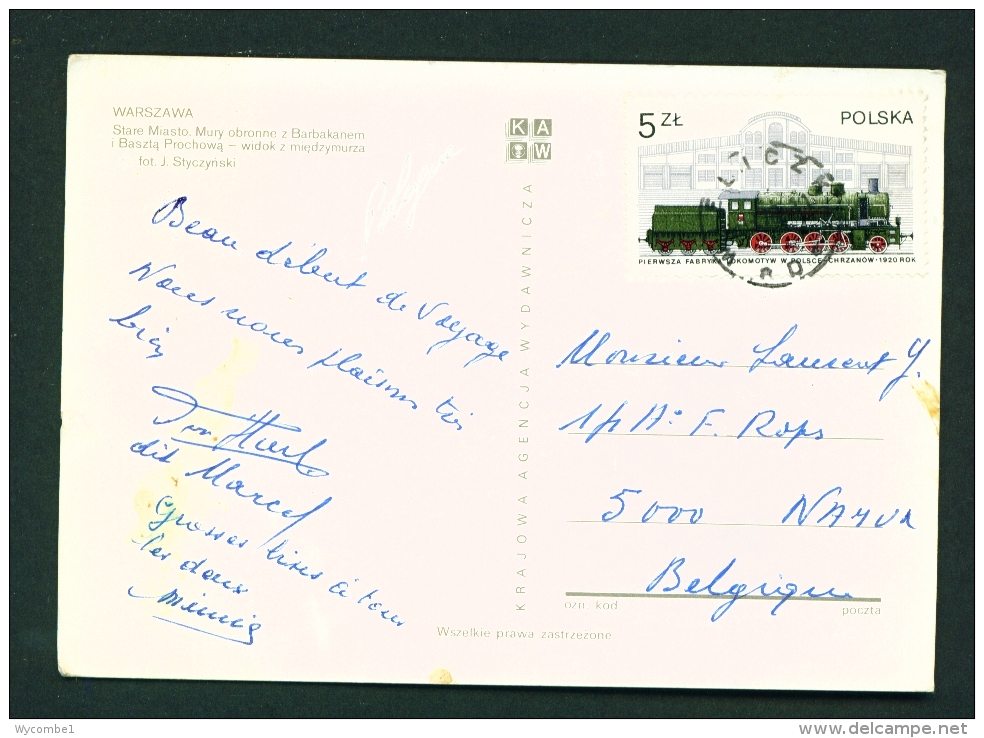 WARSZAWA
Stare Miasto. Mury obronne z Barbakanem
i Basztą Prochową – widok z międzymurza
fot. J. Styczyński
K A
W
KRAJOWA AGENCJA WYDAWNICZA
5 ZŁ
POLSKA
PIERWSZA FABRYKA LOKOMOTYW W POLSCE-CHRZANÓW-1920 ROK
Beau début de Voyage
Nous nous plaisons très
bien
dit Marcel
Grosses bises à tous
les deux
Mimie
Monsieur Laurent J.
F. Rops
5000 NAMUR
Belgique
ozn. kod
poczta
Wszelkie prawa zastrzeżone
Wycombe1
www.delcampe.net